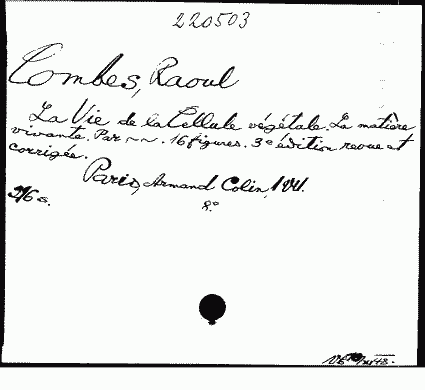 220503
Combes, Raoul
La Vie de la Cellule végétale. La matière
vivante. Par ~~. 16 figures. 3e édition revue et
corrigée.
Paris, Armand Colin,
216 s. 8°